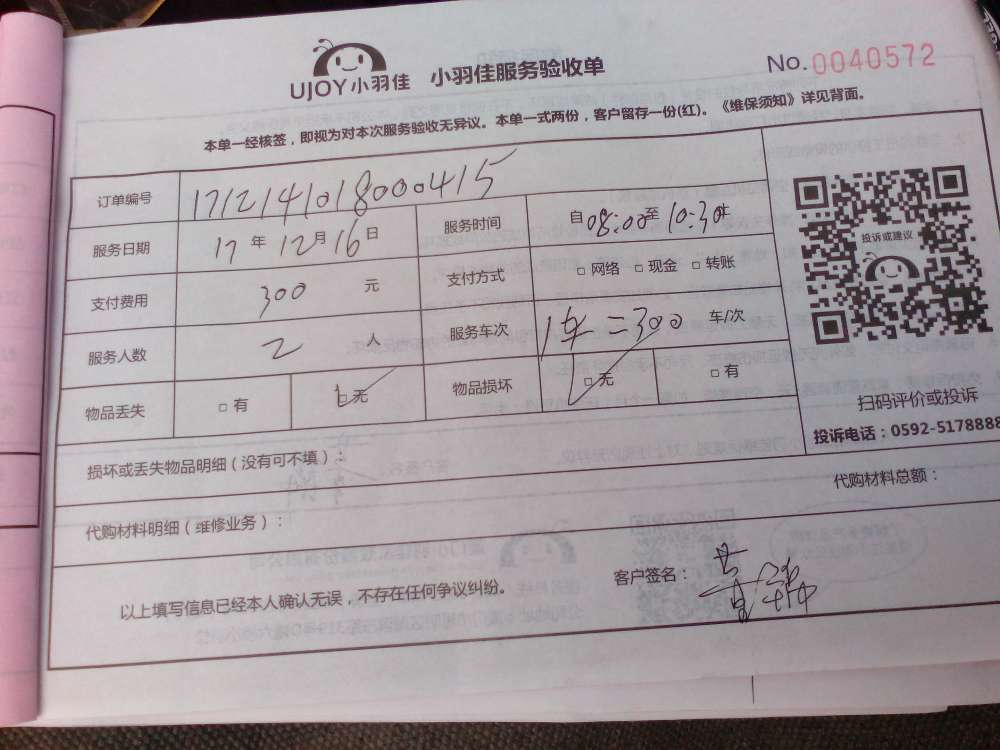 UJOY小羽佳 小羽佳服务验收单 No.0040572
本单一经核签，即视为对本次服务验收无异议。本单一式两份，客户留存一份(红)。《维保须知》详见背面。
订单编号 1712141018000415
服务日期 17年12月16日 服务时间 自08:00至10:30
支付费用 300 元 支付方式 □网络 □现金 □转账
服务人数 2 人 服务车次 1车=300 车/次
物品丢失 □有 □无 物品损坏 □无 □有
投诉或建议
扫码评价或投诉
投诉电话：0592-5178888
损坏或丢失物品明细（没有可不填）：
代购材料明细（维修业务）： 代购材料总额：
以上填写信息已经本人确认无误，不存在任何争议纠纷。 客户签名：